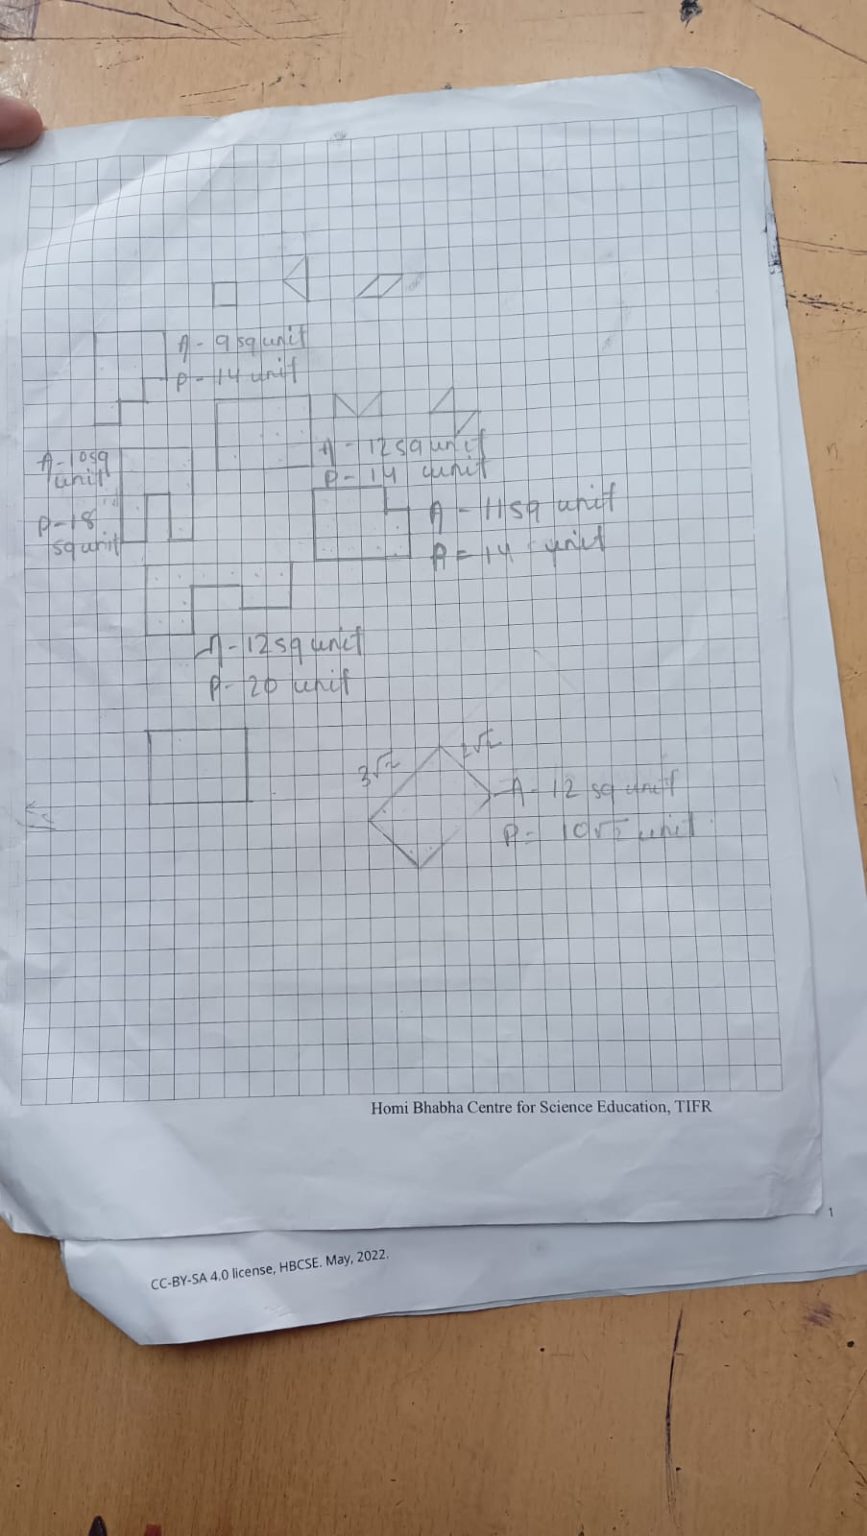 A - 9 sq unit
P - 14 unit
A - 10 sq
unit
P - 18
sq unit
A - 12 sq unit
P - 14 unit
A - 11 sq unit
P = 14 unit
A - 12 sq unit
P - 20 unit
3√2
2√2
A - 12 sq unit
P = 10√2 unit
Homi Bhabha Centre for Science Education, TIFR
1
CC-BY-SA 4.0 license, HBCSE. May, 2022.